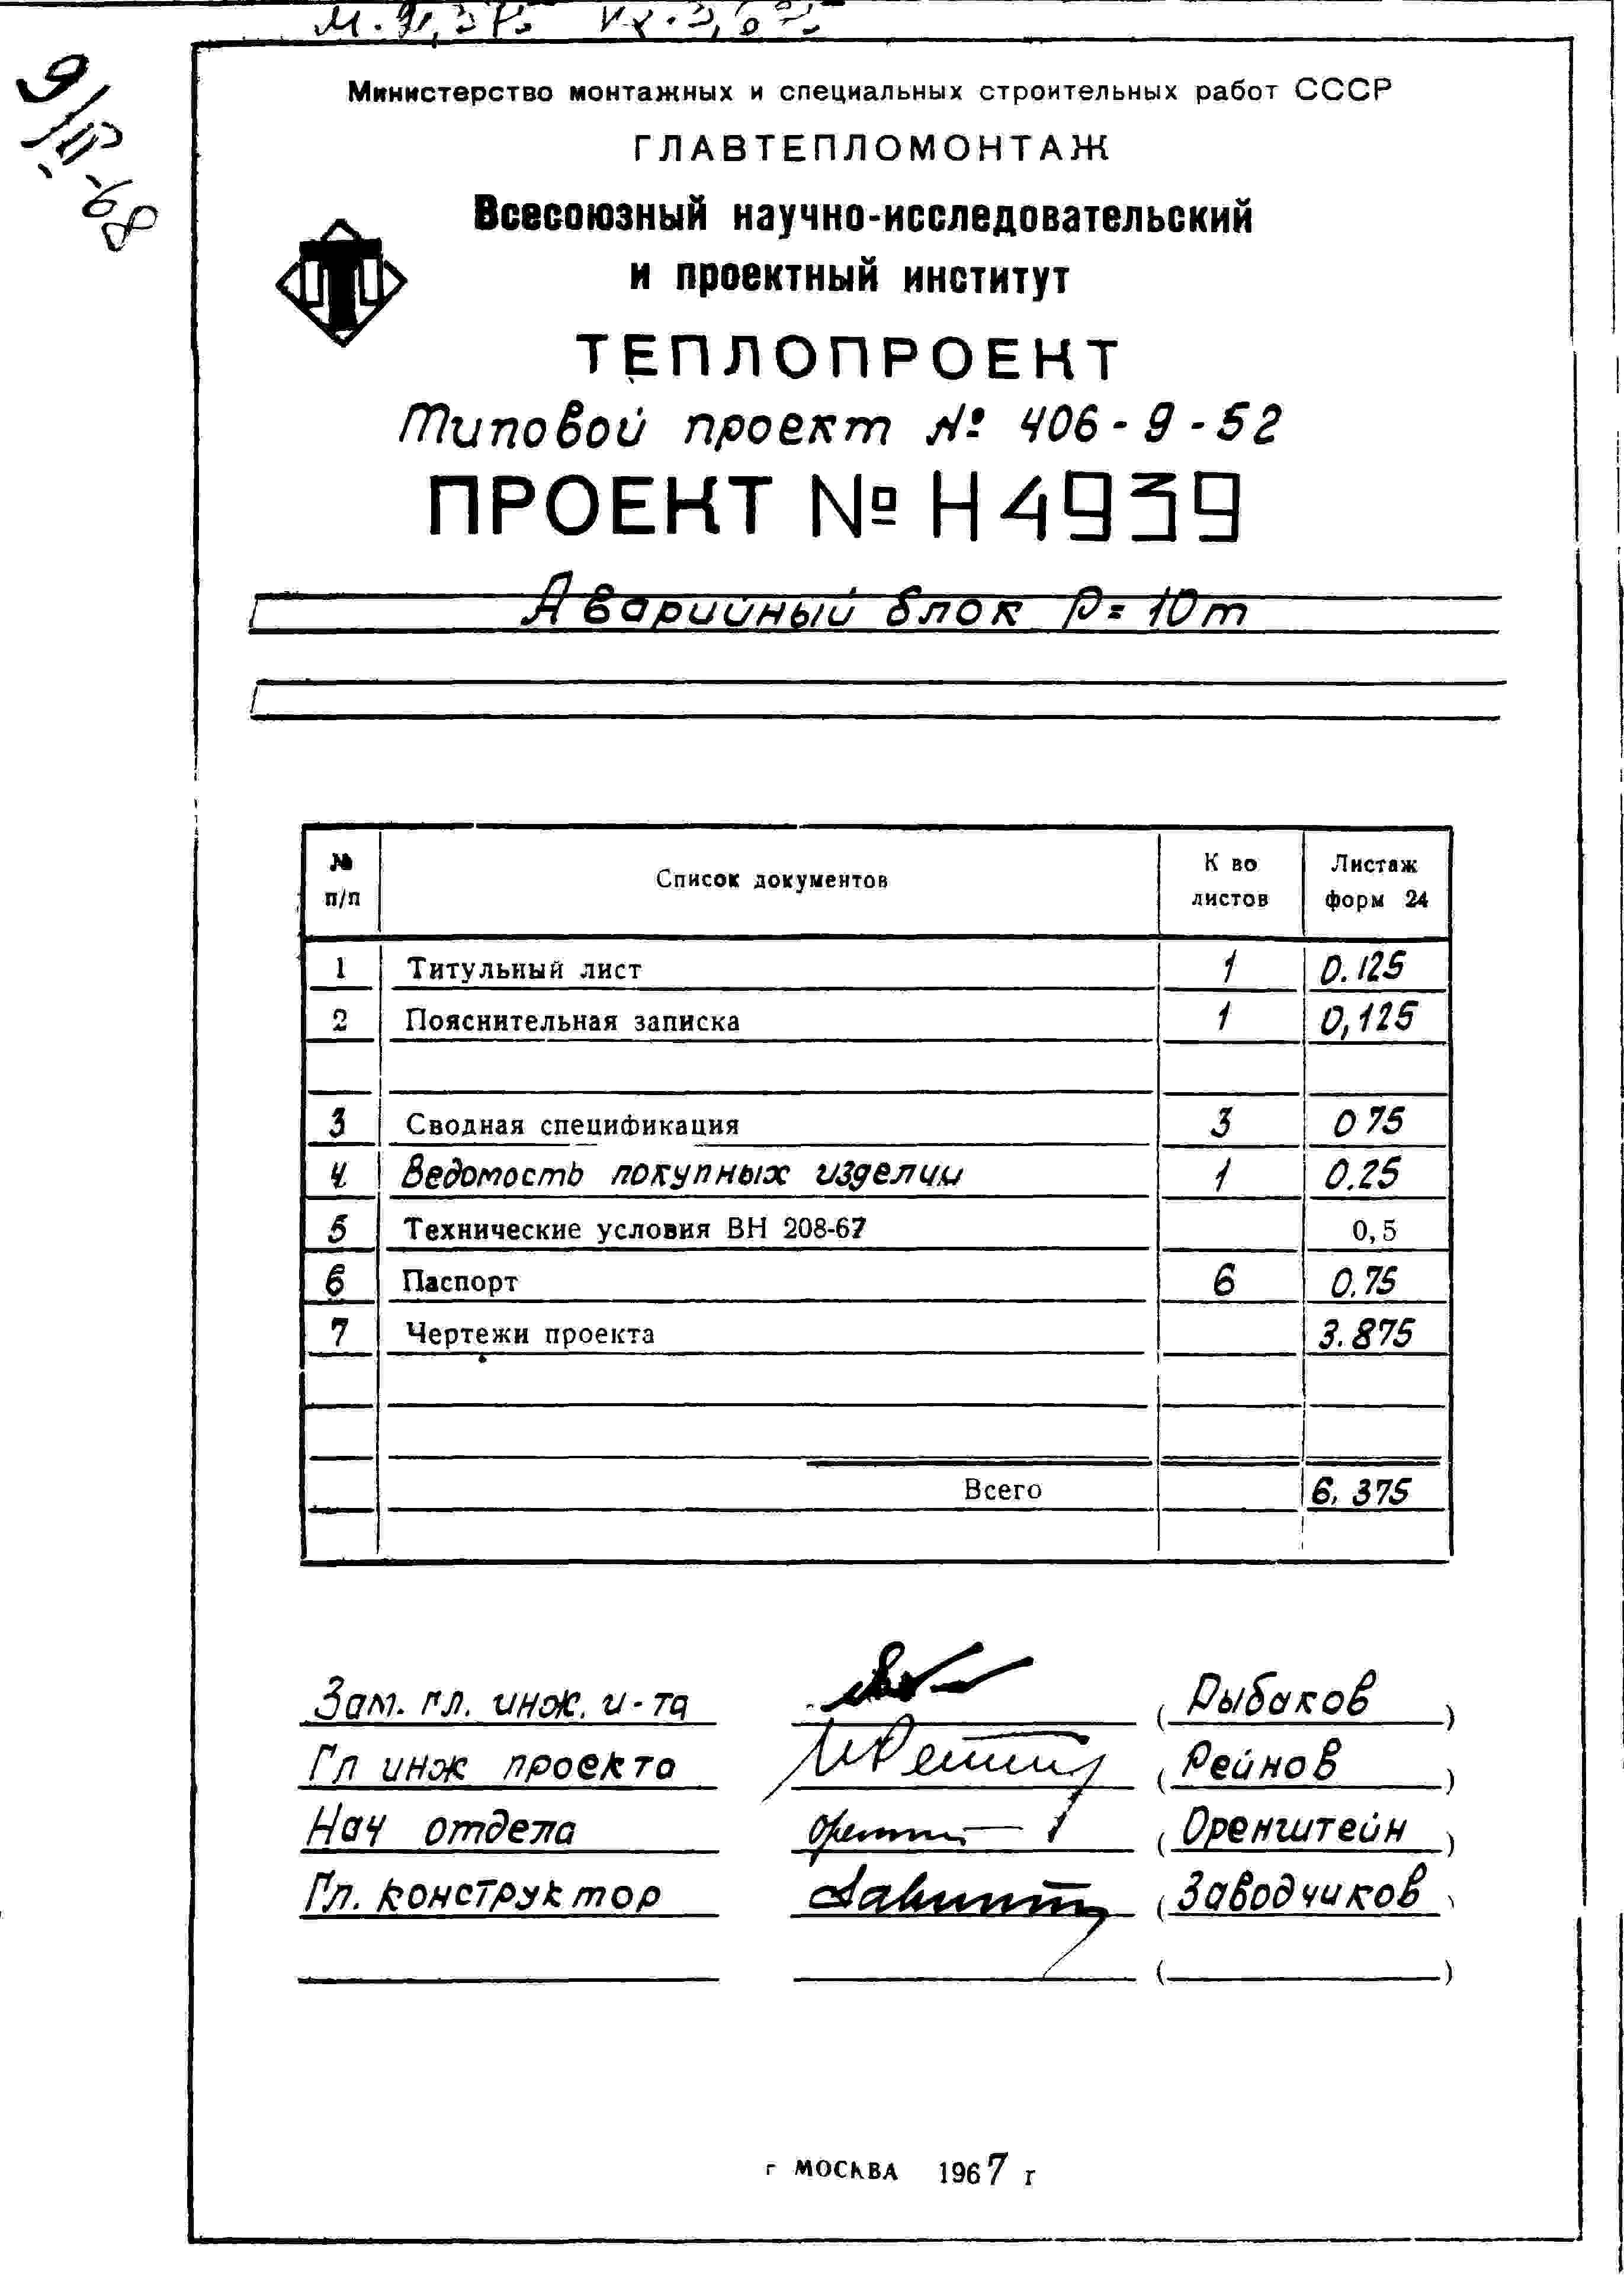 Министерство монтажных и специальных строительных работ СССР
ГЛАВТЕПЛОМОНТАЖ
Всесоюзный научно-исследовательский
и проектный институт
ТЕПЛОПРОЕКТ
Типовой проект № 406-9-52
ПРОЕКТ № Н4939
Аварийный блок Р=10т
№ п/п Список документов К во листов Листаж форм 24
1 Титульный лист 1 0.125
2 Пояснительная записка 1 0,125
3 Сводная спецификация 3 0 75
4 Ведомость покупных изделии 1 0.25
5 Технические условия ВН 208-67 0,5
6 Паспорт 6 0.75
7 Чертежи проекта 3.875
Всего 6,375
Зам. гл. инж. и-та (Рыбаков)
Гл инж проекта (Рейнов)
Нач отдела (Оренштейн)
Гл. конструктор (Заводчиков)
г МОСКВА 1967 г